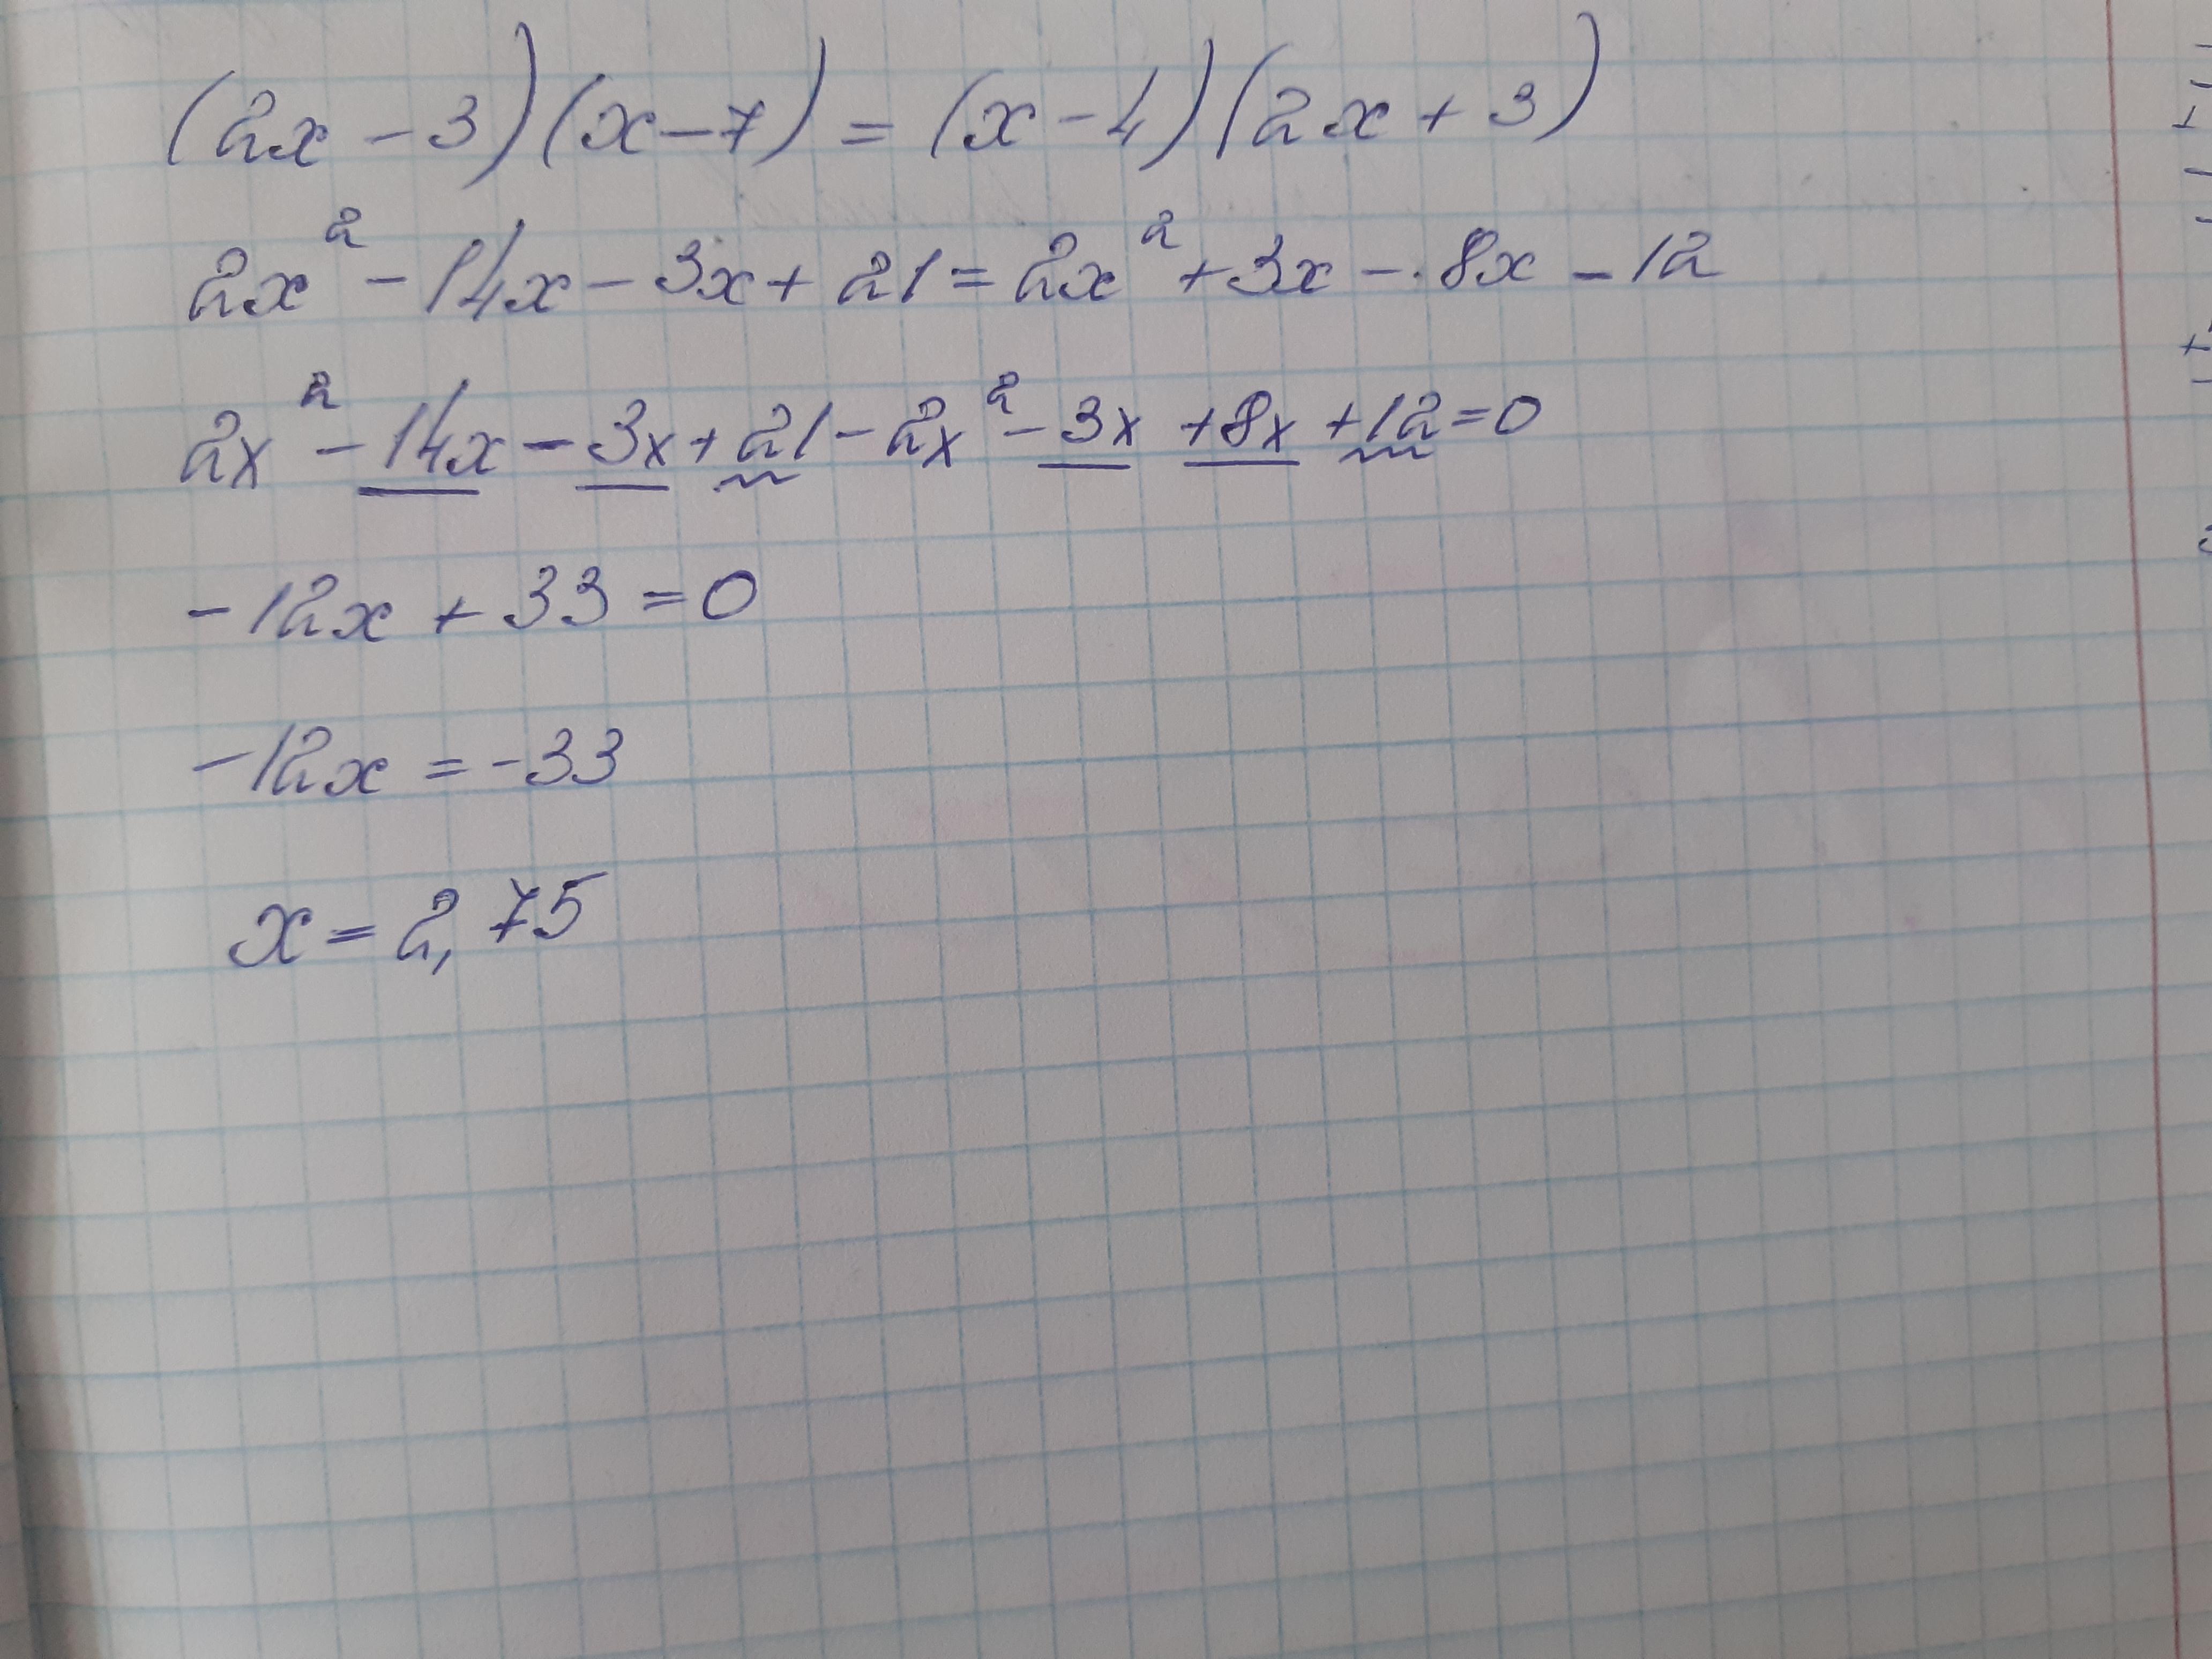 (2x - 3)(x - 7) = (x - 4)(2x + 3)
2x² - 14x - 3x + 21 = 2x² + 3x - 8x - 12
2x² - 14x - 3x + 21 - 2x² - 3x + 8x + 12 = 0
-12x + 33 = 0
-12x = -33
x = 2,75